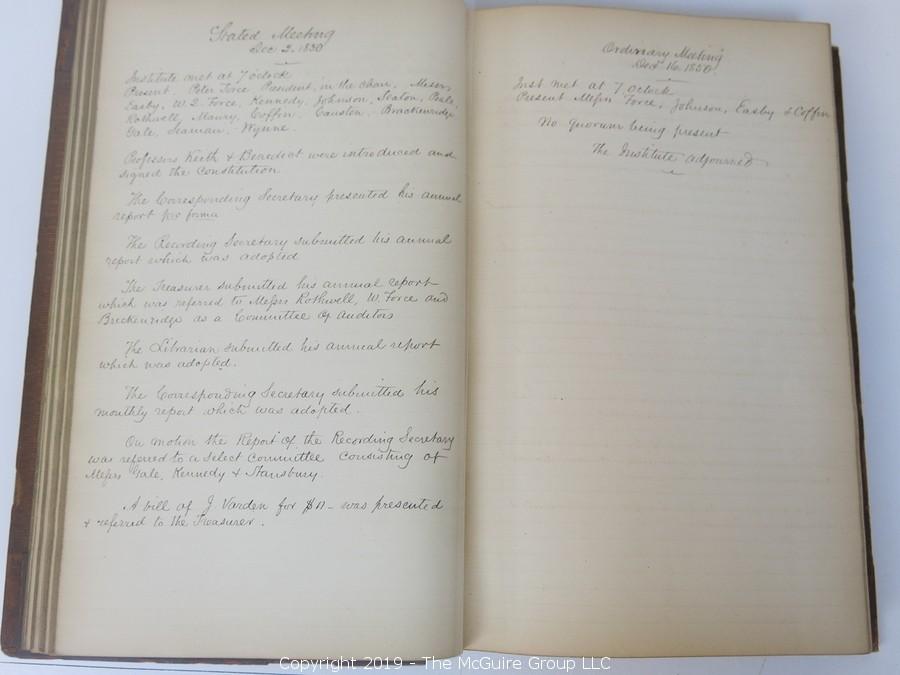 Stated Meeting
Dec 2. 1850
Institute met at 7 oclock
Present. Peter Force President, in the chair, Messrs
Easby, W. Q. Force, Kennedy, Johnson, Seaton, Peale,
Rothwell, Maury, Coffin, Causten, Brackenridge
Gale, Seaman, Wynne.
Professors Keith & Benedict were introduced and
signed the Constitution
The Corresponding Secretary presented his annual
report pro forma
The Recording Secretary submitted his annual
report which was adopted
The Treasurer submitted his annual report
which was referred to Messrs Rothwell, W. Force and
Breckenridge as a Committee of Auditors
The Librarian submitted his annual report
which was adopted.
The Corresponding Secretary submitted his
monthly report which was adopted.
On motion the Report of the Recording Secretary
was referred to a select committee consisting of
Messrs Gale, Kennedy & Stansbury.
A bill of J. Varden for was presented
& referred to the Treasurer.
Ordinary Meeting
Dec. 16. 1850.
Inst met at 7 oclock
Present Messrs Force, Johnson, Easby & Coffin
No quorum being present
The Institute adjourned
Copyright 2019 - The McGuire Group LLC